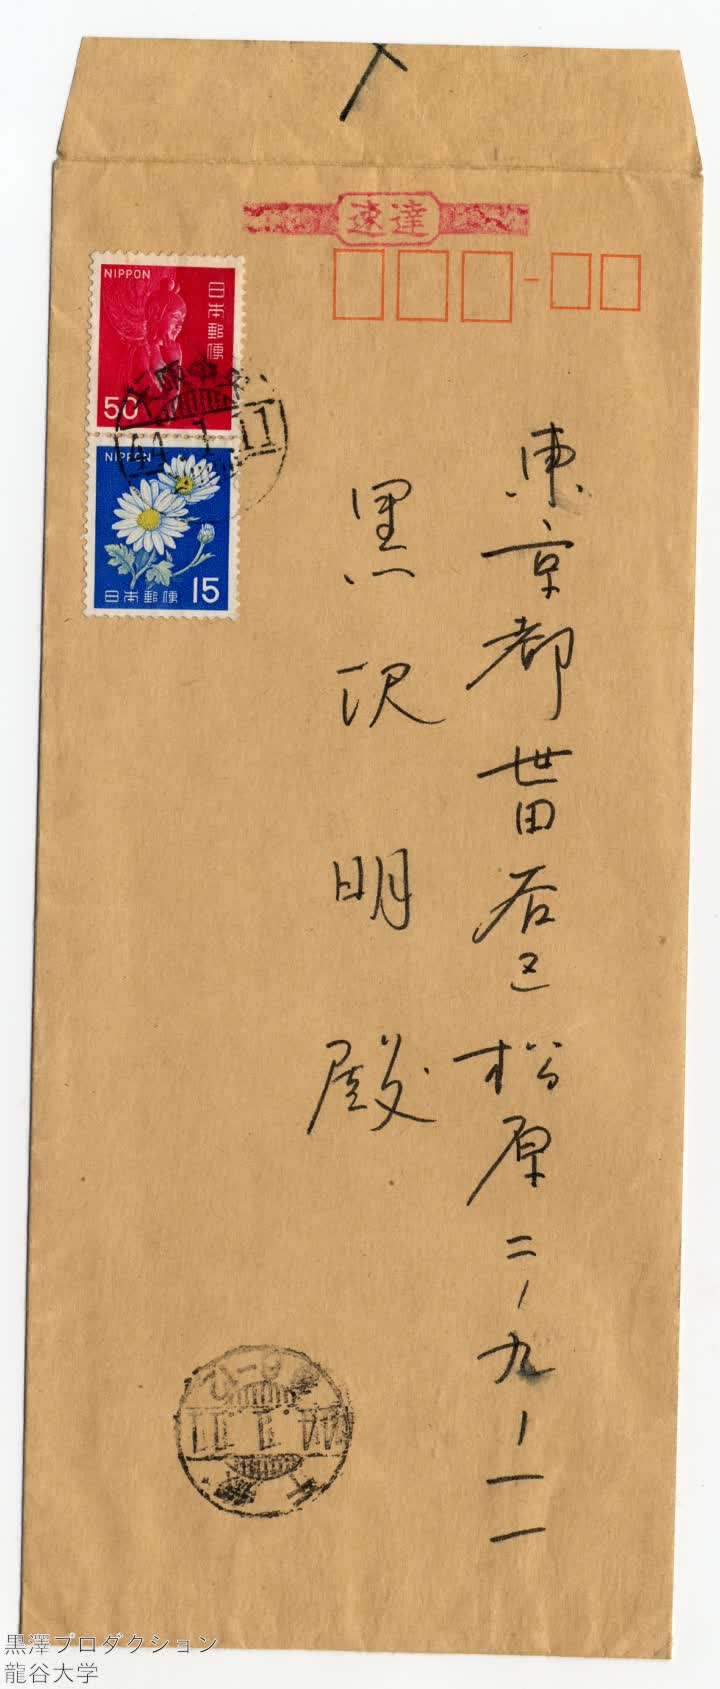 速達
NIPPON
日本郵便
50
大阪中央
44.1.11
NIPPON
日本郵便
15
東京都世田谷区松原二ノ九ノ一一
黒沢明殿
黒澤プロダクション
龍谷大学